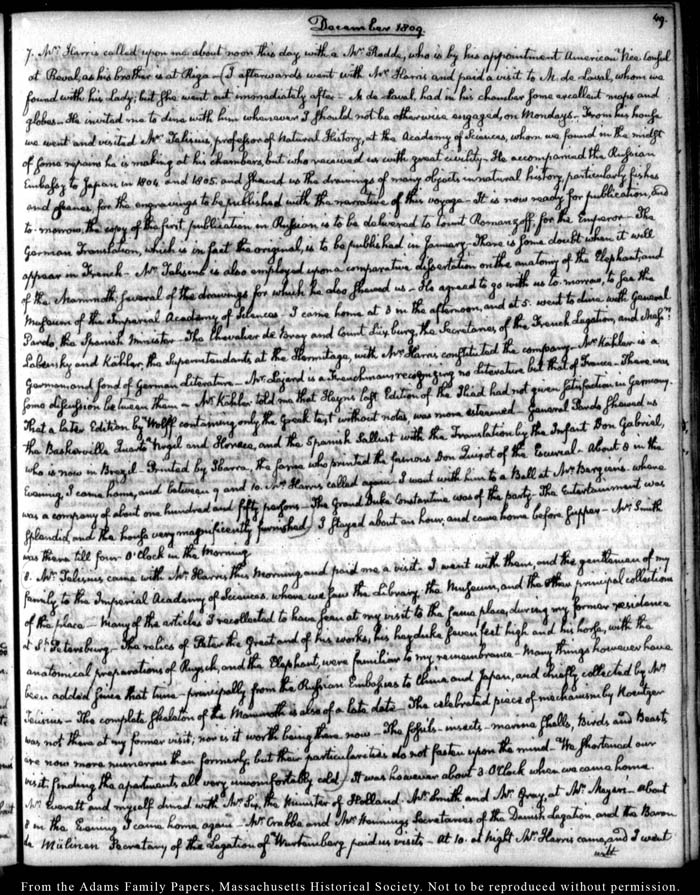 December 1809.
49.
7. Mr Harris called upon me about noon this day, with a Mr Rodde, who is by his appointment American Vice Consul
at Reval, as his brother is at Riga — (I afterwards went with Mr Harris and paid a visit to M. de Laval, whom we
found with his Lady; but she went out immediately after — M. de Laval, had in his chamber some excellent maps and
globes. He invited me to dine with him whenever I should not be otherwise engaged, on Mondays. From his house
we went and visited Mr Telisius, professor of Natural History, at the Academy of Sciences, whom we found in the midst
of some repairs he is making at his chambers, but who received us with great civility — He accompanied the Russian
Embassy to Japan, in 1804 and 1805. and shewed us the drawings of many objects in natural history, particularly fishes
and for the engravings to be published with the narrative of this voyage — It is now ready for publication, and
to-morrow, the copy of the first publication in Russian, is to be delivered to Count Romanzoff, for the Emperor — The
German Translation, which is in fact the original, is to be published in January — There is some doubt when it will
appear in French — Mr Telisius is also employed upon a comparative dissertation on the anatomy of the Elephant, and
of the Mammoth, several of the drawings for which he also shewed us — He agreed to go with us to-morrow, to see the
Museum of the Imperial Academy of Sciences — I came home at 3 in the afternoon, and at 5. went to dine with General
Pardo, the Spanish Minister — The Chevalier de Bray and Count Luxburg, the Secretaries of the French Legation, and Messrs
Labensky and Köhler, the Superintendants at the Hermitage, with Mr Harris constituted the company. Mr Köhler is a
German, and fond of German literature — Mr is a Frenchman, recognizing no literature but that of France — There was
some discussion between them — Mr Köhler told me that Heyne's last Edition of the Iliad had not given satisfaction in Germany.
That a late Edition by Wolff containing only the Greek text without notes, was more esteemed — General Pardo shewed us
the Baskerville Quarto Virgil and Horace, and the Spanish Sallust with the Translation by the Infant Don Gabriel,
who is now in Brazil. Printed by Ibarra, the same who printed the famous Don Quixot of the Escurial — About 8 in the
Evening, I came home, and between 9 and 10. Mr Harris called again. I went with him to a Ball at Mr Bergien's. where
was a company of about one hundred and fifty persons — The Grand Duke Constantine was of the party — The Entertainment was
splendid, and the house very magnificently furnished) I stayed about an hour, and came home before supper — Mr Smith
was there till four O'Clock in the Morning
8. Mr Telisius came with Mr Harris this Morning, and paid me a visit. I went with them, and the gentlemen of my
family to the Imperial Academy of Sciences, where we saw the Library, the Museum, and the other principal collections
of the place — Many of the articles I recollected to have seen at my visit to the same place, during my former residence
at St Petersburg — The relics of Peter the Great and of his works, his hayduke seven feet high and his horse, with the
anatomical preparations of Ruysch, and the Elephant, were familiar to my remembrance — Many things however have
been added since that time — principally from the Russian Embassies to China and Japan, and chiefly collected by Mr
Telisius — The complete skeleton of the Mammoth is also of a late date — The celebrated piece of mechanism by
was not there at my former visit; nor is it worth being there now — The fossils — insects — marine shells, Birds and Beasts,
are now more numerous than formerly, but their particularities do not fasten upon the mind — We shortened our
visit, finding the apartments all very uncomfortably cold) It was however about 3 O'Clock when we came home.
Mr Everett and myself dined with Mr Six, the Minister of Holland. Mr Smith and Mr Gray, at Mr Meyer's — About
8 in the Evening I came home again — Mr Krabbe and Mr Hennings, Secretaries of the Danish Legation, and the Baron
de Mülinen Secretary of the Legation of Wurtemberg paid us visits — At 10. at Night Mr Harris came, and I went
with
From the Adams Family Papers, Massachusetts Historical Society. Not to be reproduced without permission.